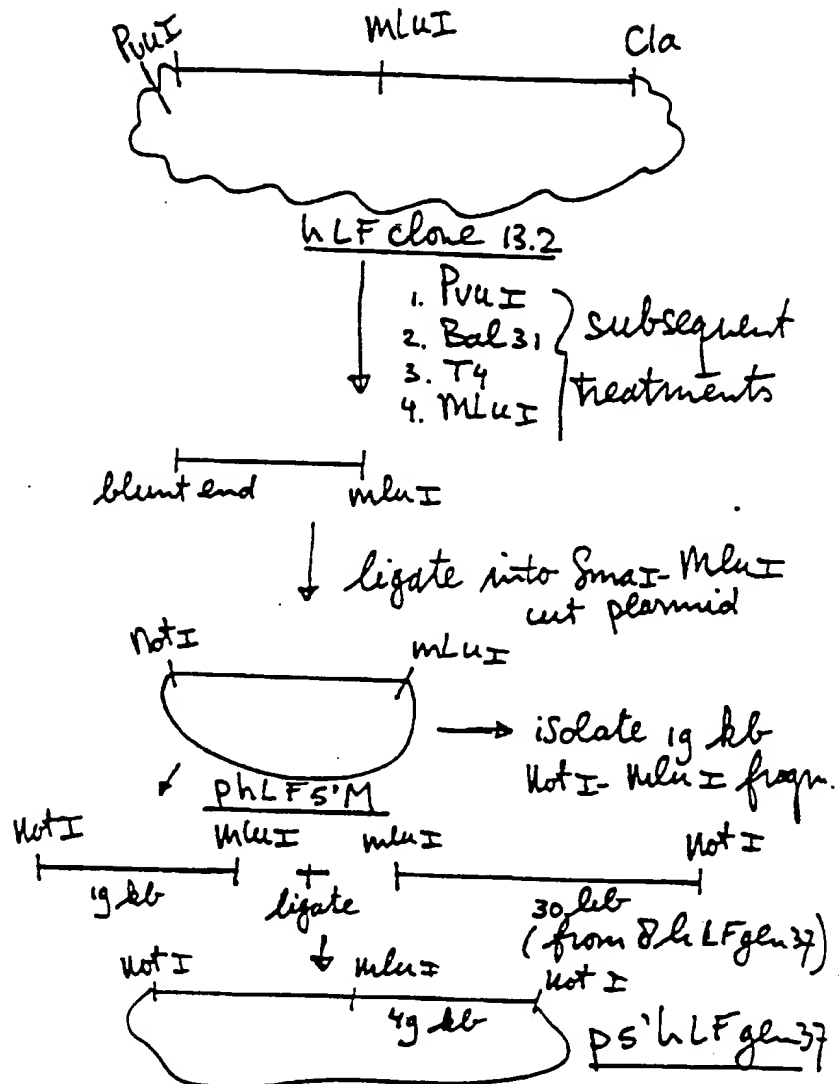 PvuI
mLuI
Cla
hLF clone 13.2
1. PvuI
2. Bal31
3. T4
4. MLuI
subsequent
treatments
blunt end
mluI
ligate into SmaI-MluI
cut plasmid
NotI
mLuI
isolate 19 kb
NotI-MluI fragm.
phLF5'M
NotI
MLuI
mluI
NotI
19 kb
+
ligate
30 kb
(from 8hLFgen37)
NotI
mluI
NotI
49 kb
p5'hLFgen37